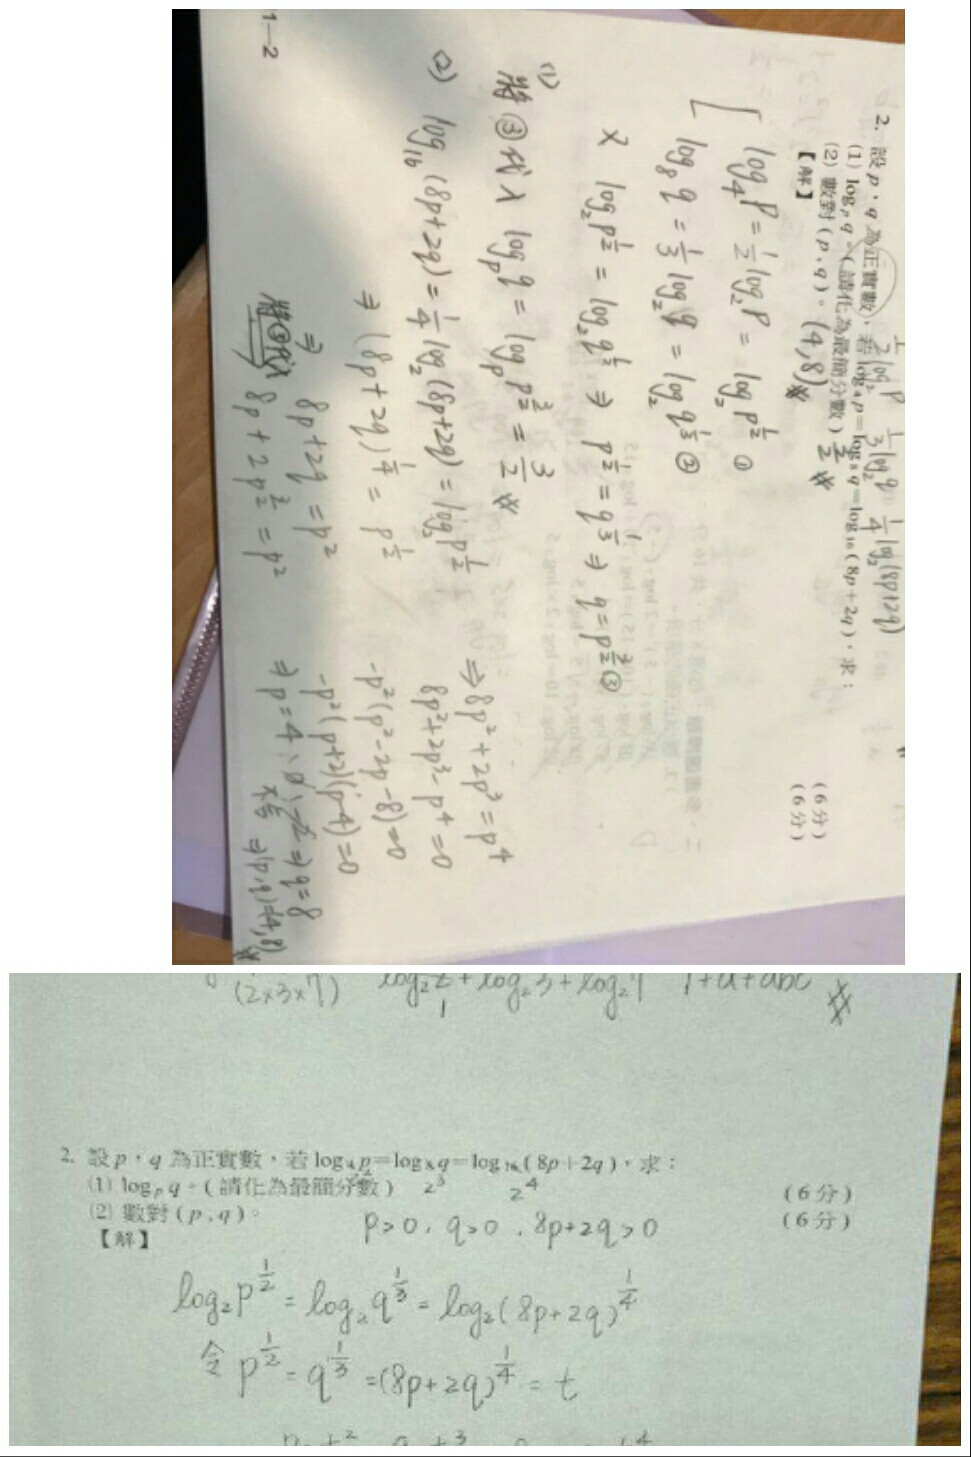 2. 設 p，q 為正實數，若 log₄p=log₈q=log₁₆(8p+2q)，求：
½log₂p ⅓log₂q ¼log₂(8p+2q)
(1) log_p q。(請化為最簡分數) 3/2 (6分)
(2) 數對(p,q)。(4,8) (6分)
【解】
log₄p=½log₂p=log₂p^½ ①
log₈q=⅓log₂q=log₂q^⅓ ②
log₂p^½=log₂q^⅓ ⇒ p^½=q^⅓ ⇒ q=p^(3/2) ③
(1)
將③代入 log_p q=log_p p^(3/2)=3/2
(2) log₁₆(8p+2q)=¼log₂(8p+2q)=log₂p^½
⇒(8p+2q)^¼=p^½
⇒ 8p+2q=p²
將③代入 8p+2p^(3/2)=p²
⇒8p²+2p³=p⁴
8p²+2p³-p⁴=0
-p²(p²-2p-8)=0
-p²(p+2)(p-4)=0
⇒p=4、0、-2⇒q=8
不合 ⇒(p,q)=(4,8)
1-2
(2×3×7) log₂2+log₂3+log₂7 1+a+abc
1
2. 設 p，q 為正實數，若 log₄p=log₈q=log₁₆(8p+2q)，求：
(1) log_p q。(請化為最簡分數) 2³ 2⁴ (6分)
(2) 數對(p,q)。 (6分)
p>0，q>0，8p+2q>0
【解】
log₂p^½=log₂q^⅓=log₂(8p+2q)^¼
令 p^½=q^⅓=(8p+2q)^¼=t